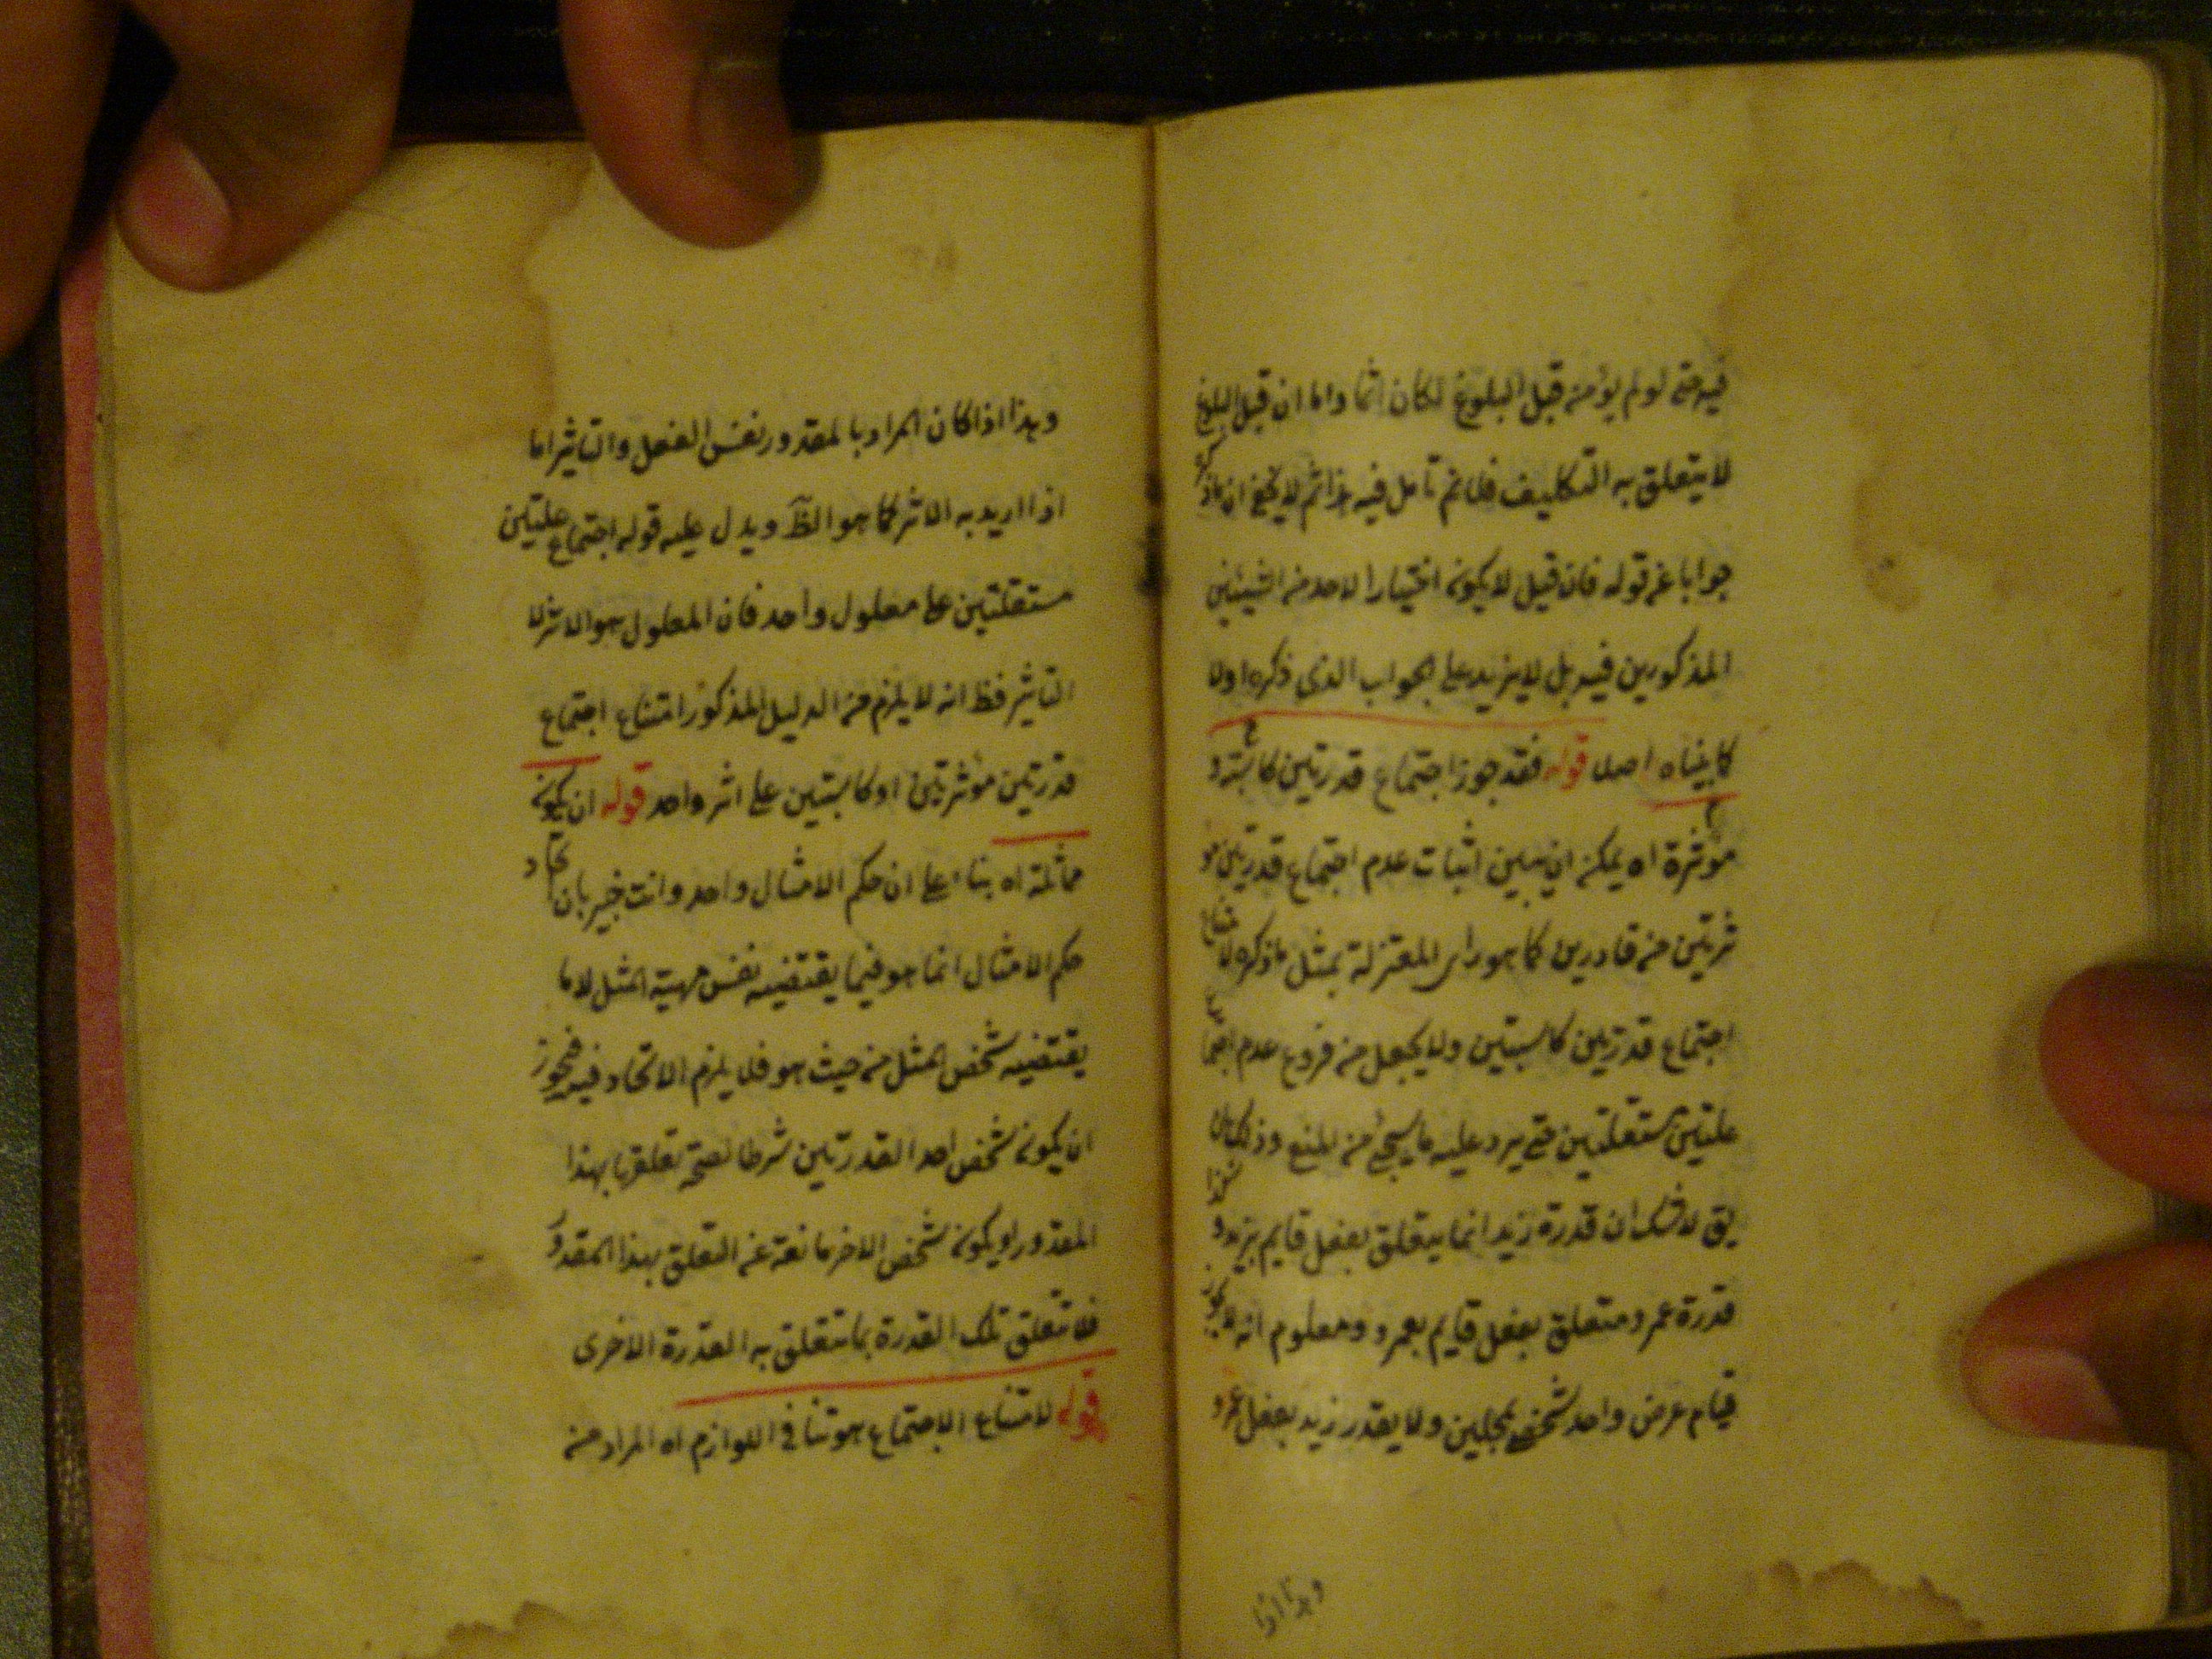 فيه حتى لو لم يؤمن قبل البلوغ لكان آثما واما ان قبل البلوغ
لا يتعلق به التكليف فلا نم تأمل فيه هذا ثم لا يخفى ان ما ذكر
جوابا عن قوله فان قيل لا يكون اختيارا لاحد من الشيئين
المذكورين فيه بل لا يزيد على الجواب الذي ذكره اولا
كما بيناه اصلا قوله فقد جوز اجتماع قدرتين كاسبة و
مؤثرة اه يمكن ان يبين اثبات عدم اجتماع قدرتين مو
ثرتين من قادرين كما هو راى المعتزلة بمثل ما ذكره لامتناع
اجتماع قدرتين كاسبتين ولا يجعل من فروع عدم اجتماع
علتين مستقلتين حتى يرد عليه ما سيجئ من المنع وذلك بان
يق لا شك ان قدرة زيد انما يتعلق بفعل قايم بزيد و
قدرة عمرو متعلق بفعل قايم بعمرو ومعلوم انه لا يجوز
قيام عرض واحد شخصي بمحلين ولا يقدر زيد بفعل عمرو
وهذا اذا
وهذا اذا كان المراد بالمقدور نفس الفعل والتاثير اما
اذا اريد به الاثر كما هو الظ ويدل عليه قوله اجتماع علتين
مستقلتين على معلول واحد فان المعلول هو الاثر لا
التاثير فظ انه لا يلزم من الدليل المذكور امتناع اجتماع
قدرتين مؤثرتين او كاسبتين على اثر واحد قوله ان يكون
مماثلة اه بناء على ان حكم الامثال واحد وانت خبير بان اتحاد
حكم الامثال انما هو فيما يقتضيه نفس مهية المثل لا ما
يقتضيه شخص المثل من حيث هو فلا يلزم الاتحاد فيه فيجوز
ان يكون شخص احد القدرتين شرطا لصحة تعلقها بهذا
المقدور او يكون شخص الاخر مانعة عن التعلق بهذا المقدور
فلا تتعلق تلك القدرة بما تتعلق به القدرة الاخرى
قوله لامتناع الاجتماع هو تنافى اللوازم اه المراد منه